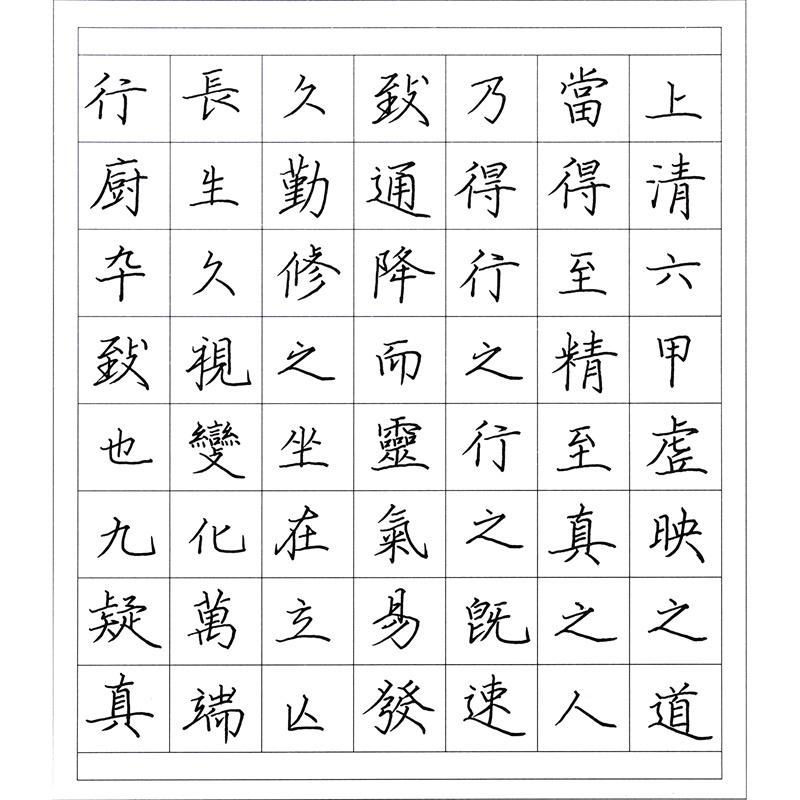 上清六甲虛映之道
當得至精至真之人
乃得行之行之既速
致通降而靈氣易發
久勤修之坐在立亾
長生久視變化萬端
行廚卆致也九疑真